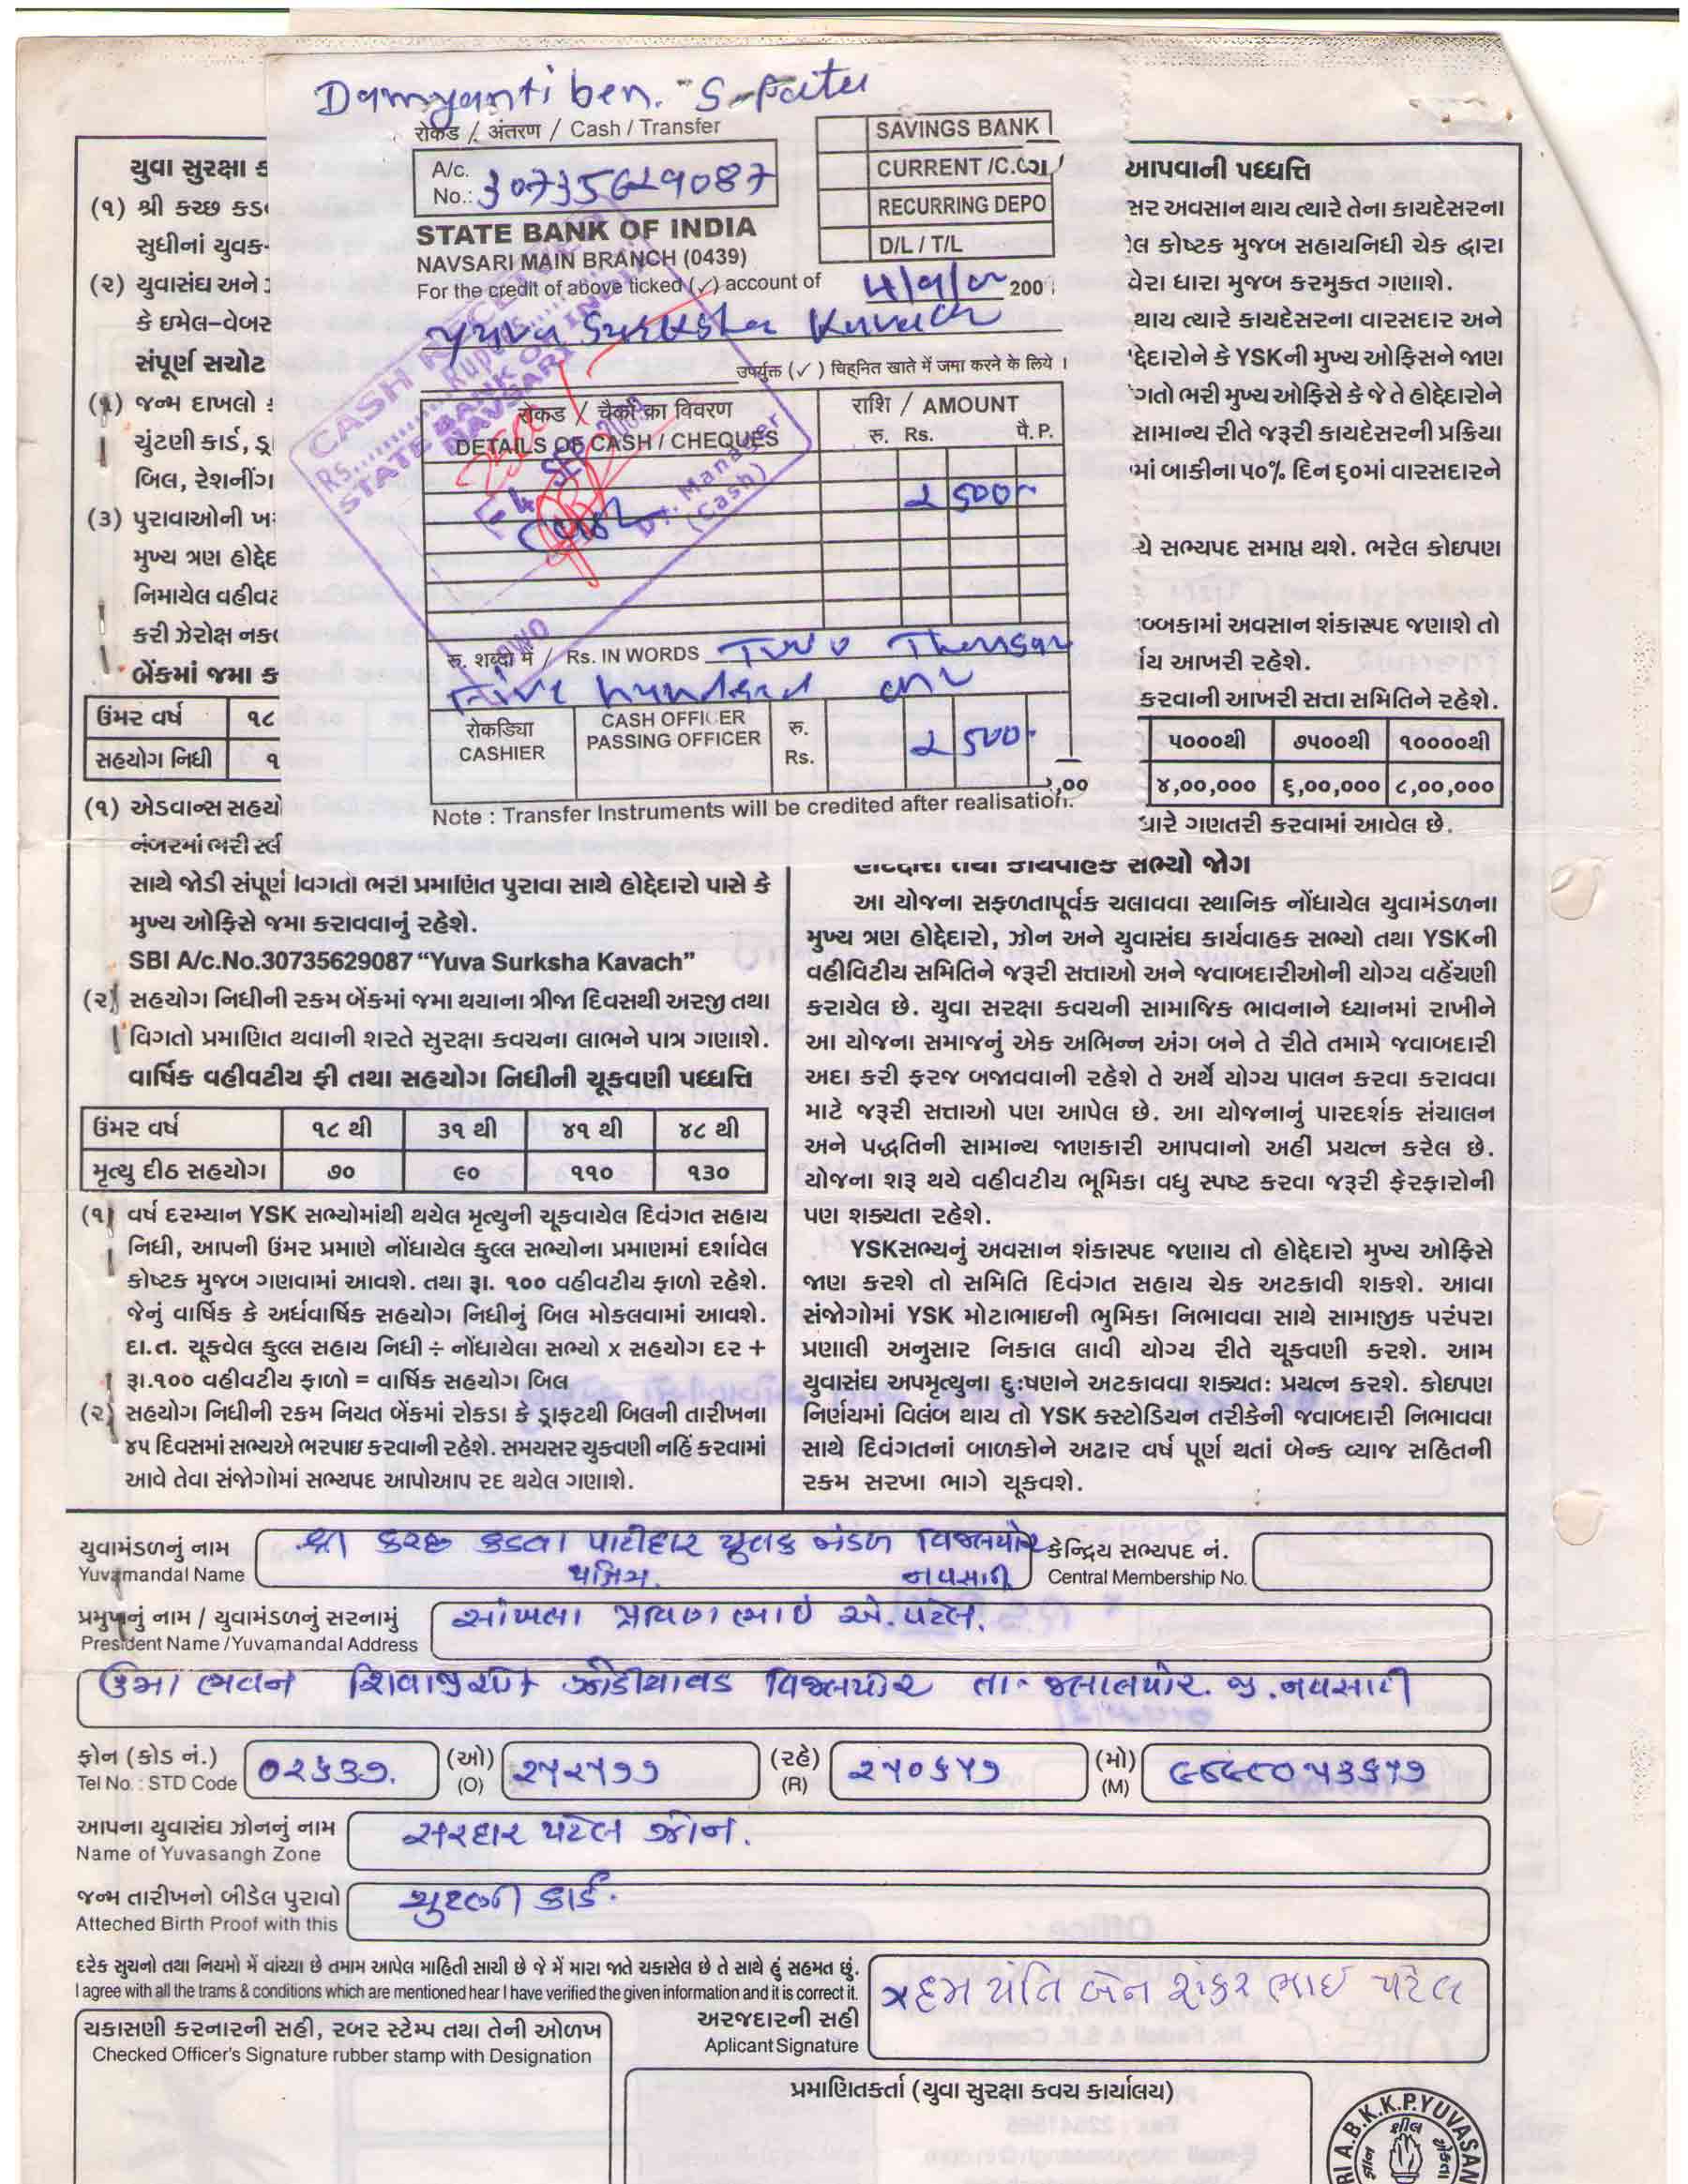 Damyanti ben. S. Patel
रोकड / अंतरण / Cash / Transfer
A/c.
No.: 30735629087
SAVINGS BANK
CURRENT /C.C
RECURRING DEPO
D/L / T/L
STATE BANK OF INDIA
NAVSARI MAIN BRANCH (0439)
For the credit of above ticked (✓) account of
200
Yuva Suraksha Kavach
उपर्युक्त (✓) चिह्नित खाते में जमा करने के लिये ।
रोकड / चैकों का विवरण
DETAILS OF CASH / CHEQUES
राशि / AMOUNT
रु. Rs. पै. P.
2500
Cash
2 500
रु. शब्दो में / Rs. IN WORDS Two Thousan
Five hundred
रोकडिया
CASHIER
CASH OFFICER
PASSING OFFICER
रु.
Rs.
2 500
Note : Transfer Instruments will be credited after realisation.
STATE BANK OF INDIA
NAVSARI
Dy. Manager
(Cash)
યુવા સુરક્ષા ક
(૧) શ્રી કચ્છ કડ
સુધીનાં યુવક-
(૨) યુવાસંઘ અને
કે ઇમેલ-વેબર
સંપૂર્ણ સચોટ
(૧) જન્મ દાખલો
ચુંટણી કાર્ડ, ડ્ર
બિલ, રેશનીંગ
(૩) પુરાવાઓની ખ
મુખ્ય ત્રણ હોદ્દેદ
નિમાયેલ વહીવટ
કરી ઝેરોક્ષ નક
બેંકમાં જમા ક
ઉંમર વર્ષ ૧૮
સહયોગ નિધી ૧
(૧) એડવાન્સ સહયો
નંબરમાં ભરી સ્લી
સાથે જોડી સંપૂર્ણ વિગતો ભરી પ્રમાણિત પુરાવા સાથે હોદ્દેદારો પાસે કે
મુખ્ય ઓફિસે જમા કરાવવાનું રહેશે.
SBI A/c.No.30735629087 “Yuva Surksha Kavach”
(૨) સહયોગ નિધીની રકમ બેંકમાં જમા થયાના ત્રીજા દિવસથી અરજી તથા
વિગતો પ્રમાણિત થવાની શરતે સુરક્ષા કવચના લાભને પાત્ર ગણાશે.
વાર્ષિક વહીવટીય ફી તથા સહયોગ નિધીની ચૂકવણી પધ્ધતિ
ઉંમર વર્ષ ૧૮ થી ૩૧ થી ૪૧ થી ૪૮ થી
મૃત્યુ દીઠ સહયોગ ૭૦ ૯૦ ૧૧૦ ૧૩૦
(૧) વર્ષ દરમ્યાન YSK સભ્યોમાંથી થયેલ મૃત્યુની ચૂકવાયેલ દિવંગત સહાય
નિધી, આપની ઉંમર પ્રમાણે નોંધાયેલ કુલ્લ સભ્યોના પ્રમાણમાં દર્શાવેલ
કોષ્ટક મુજબ ગણવામાં આવશે. તથા રૂા. ૧૦૦ વહીવટીય ફાળો રહેશે.
જેનું વાર્ષિક કે અર્ધવાર્ષિક સહયોગ નિધીનું બિલ મોકલવામાં આવશે.
દા.ત. ચૂકવેલ કુલ્લ સહાય નિધી ÷ નોંધાયેલા સભ્યો x સહયોગ દર +
રૂા.૧૦૦ વહીવટીય ફાળો = વાર્ષિક સહયોગ બિલ
(૨) સહયોગ નિધીની રકમ નિયત બેંકમાં રોકડા કે ડ્રાફટથી બિલની તારીખના
૪૫ દિવસમાં સભ્યએ ભરપાઇ કરવાની રહેશે. સમયસર ચુકવણી નહિં કરવામાં
આવે તેવા સંજોગોમાં સભ્યપદ આપોઆપ રદ થયેલ ગણાશે.
આપવાની પધ્ધતિ
સર અવસાન થાય ત્યારે તેના કાયદેસરના
લ કોષ્ટક મુજબ સહાયનિધી ચેક દ્વારા
વેરા ધારા મુજબ કરમુક્ત ગણાશે.
થાય ત્યારે કાયદેસરના વારસદાર અને
દ્દેદારોને કે YSKની મુખ્ય ઓફિસને જાણ
ગતો ભરી મુખ્ય ઓફિસે કે જે તે હોદ્દેદારોને
સામાન્ય રીતે જરૂરી કાયદેસરની પ્રક્રિયા
માં બાકીના ૫૦% દિન ૬૦માં વારસદારને
ચે સભ્યપદ સમાપ્ત થશે. ભરેલ કોઇપણ
બ્બકામાં અવસાન શંકાસ્પદ જણાશે તો
ર્ણય આખરી રહેશે.
કરવાની આખરી સત્તા સમિતિને રહેશે.
૫૦૦૦થી ૭૫૦૦થી ૧૦૦૦૦થી
૪,૦૦,૦૦૦ ૬,૦૦,૦૦૦ ૮,૦૦,૦૦૦
ધારે ગણતરી કરવામાં આવેલ છે.
હોદ્દેદારો તથા કાર્યવાહક સભ્યો જોગ
આ યોજના સફળતાપૂર્વક ચલાવવા સ્થાનિક નોંધાયેલ યુવામંડળના
મુખ્ય ત્રણ હોદ્દેદારો, ઝોન અને યુવાસંઘ કાર્યવાહક સભ્યો તથા YSKની
વહીવિટીય સમિતિને જરૂરી સત્તાઓ અને જવાબદારીઓની યોગ્ય વહેંચણી
કરાયેલ છે. યુવા સરક્ષા કવચની સામાજિક ભાવનાને ધ્યાનમાં રાખીને
આ યોજના સમાજનું એક અભિન્ન અંગ બને તે રીતે તમામે જવાબદારી
અદા કરી ફરજ બજાવવાની રહેશે તે અર્થે યોગ્ય પાલન કરવા કરાવવા
માટે જરૂરી સત્તાઓ પણ આપેલ છે. આ યોજનાનું પારદર્શક સંચાલન
અને પદ્ધતિની સામાન્ય જાણકારી આપવાનો અહીં પ્રયત્ન કરેલ છે.
યોજના શરૂ થયે વહીવટીય ભૂમિકા વધુ સ્પષ્ટ કરવા જરૂરી ફેરફારોની
પણ શક્યતા રહેશે.
YSKસભ્યનું અવસાન શંકાસ્પદ જણાય તો હોદ્દેદારો મુખ્ય ઓફિસે
જાણ કરશે તો સમિતિ દિવંગત સહાય ચેક અટકાવી શકશે. આવા
સંજોગોમાં YSK મોટાભાઇની ભુમિકા નિભાવવા સાથે સામાજીક પરંપરા
પ્રણાલી અનુસાર નિકાલ લાવી યોગ્ય રીતે ચૂકવણી કરશે. આમ
યુવાસંઘ અપમૃત્યુના દુઃષણને અટકાવવા શક્યતઃ પ્રયત્ન કરશે. કોઇપણ
નિર્ણયમાં વિલંબ થાય તો YSK કસ્ટોડિયન તરીકેની જવાબદારી નિભાવવા
સાથે દિવંગતનાં બાળકોને અઢાર વર્ષ પૂર્ણ થતાં બેન્ક વ્યાજ સહિતની
રકમ સરખા ભાગે ચૂકવશે.
યુવામંડળનું નામ
Yuvamandal Name
શ્રી કચ્છ કડવા પાટીદાર યુવક મંડળ વિજલપોર
પશ્ચિમ. નવસારી
કેન્દ્રિય સભ્યપદ નં.
Central Membership No.
પ્રમુખનું નામ / યુવામંડળનું સરનામું
President Name /Yuvamandal Address
સાંખલા પ્રવિણભાઇ એ. પટેલ.
ઉમા ભવન શિવાજી ચોક વિજલપોર તા- જલાલપોર. જી. નવસારી
ફોન (કોડ નં.)
Tel No. : STD Code
૦૨૬૩૭.
(ઓ)
(O)
૨૫૨૫૭૭
(રહે)
(R)
૨૫૦૬૫૭
(મો)
(M)
આપના યુવાસંઘ ઝોનનું નામ
Name of Yuvasangh Zone
સરદાર પટેલ ઝોન.
જન્મ તારીખનો બીડેલ પુરાવો
Atteched Birth Proof with this
ચુંટણી કાર્ડ.
દરેક સુચનો તથા નિયમો મેં વાંચ્યા છે તમામ આપેલ માહિતી સાચી છે જે મેં મારા જાતે ચકાસેલ છે તે સાથે હું સહમત છું.
I agree with all the trams & conditions which are mentioned hear I have verified the given information and it is correct it.
અરજદારની સહી
Aplicant Signature
x દમયંતિ બેન શંકર ભાઈ પટેલ
ચકાસણી કરનારની સહી, રબર સ્ટેમ્પ તથા તેની ઓળખ
Checked Officer's Signature rubber stamp with Designation
પ્રમાણિતકર્તા (યુવા સુરક્ષા કવચ કાર્યાલય)
RI A.B.K.K.P.YUVASAN
શીલ